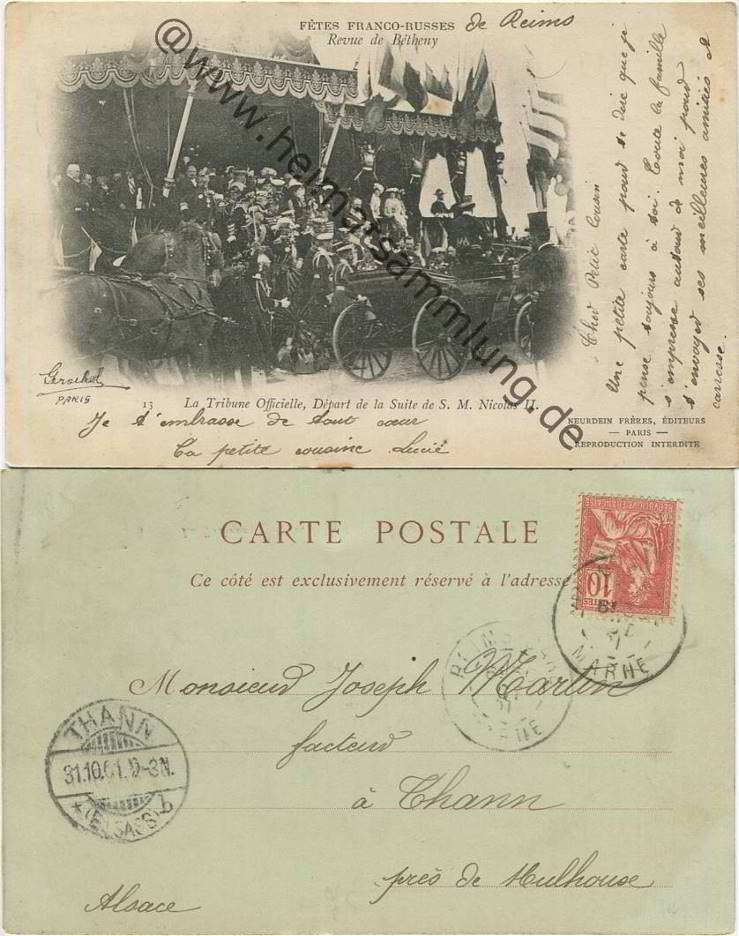 FÊTES FRANCO-RUSSES de Reims
Revue de Bétheny
@www.heimatsammlung.de
Cher Petit Cousin
Une petite carte pour te dire que je
pense toujours à toi. Toute la famille
s'empresse autour de moi pour
t'envoyer ses meilleures amitiés et
caresse.
Gerschel
PARIS
13 La Tribune Officielle, Départ de la Suite de S. M. Nicolas II.
Je t'embrasse de tout cœur
Ta petite cousine Lucie
NEURDEIN FRÈRES, ÉDITEURS
— PARIS —
REPRODUCTION INTERDITE
CARTE POSTALE
Ce côté est exclusivement réservé à l'adresse
10
MARNE
REIMS
MARNE
Monsieur Joseph Martin
facteur
à Thann
près de Mulhouse
Alsace
THANN
31.10.01. 2-3N.
* (ELSASS) b